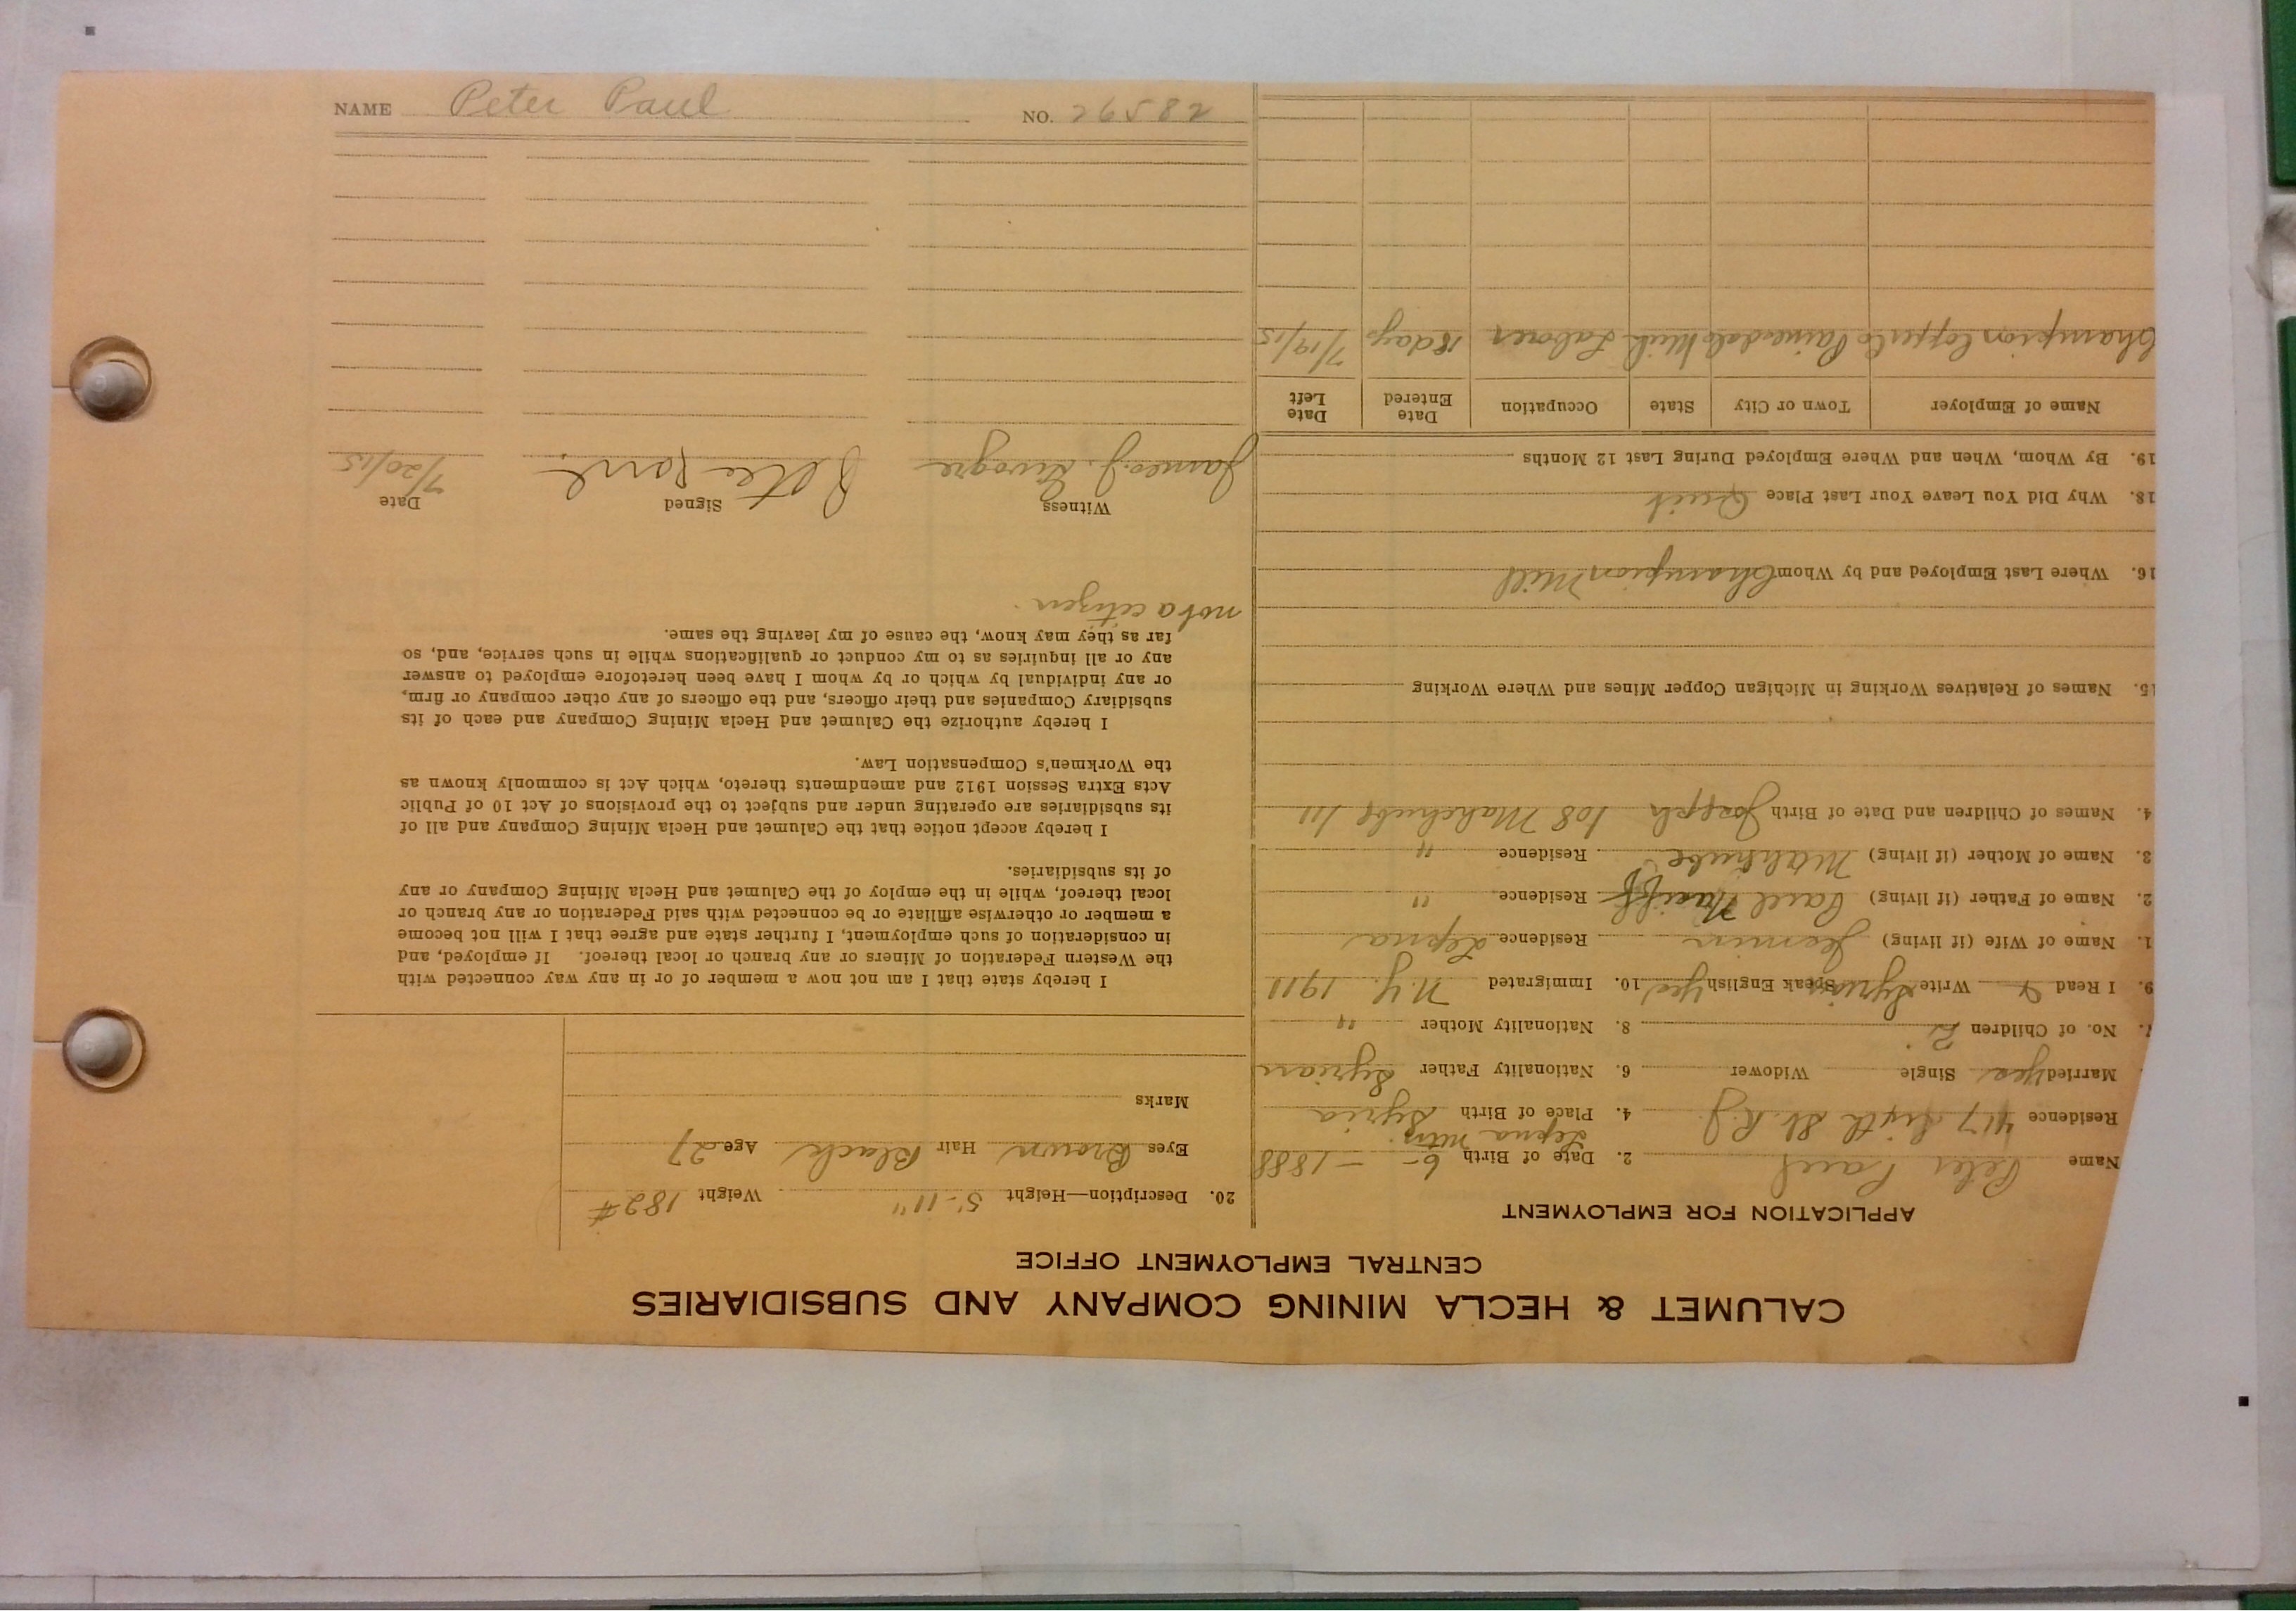 NAME Peter Paul NO. 26582
CALUMET & HECLA MINING COMPANY AND SUBSIDIARIES
CENTRAL EMPLOYMENT OFFICE
APPLICATION FOR EMPLOYMENT
Name Peter Paul 2. Date of Birth 6 - - 1888
Residence 417 Sixth St. R.J. 4. Place of Birth Syria
Married yes Single Widower 6. Nationality Father Syrian
7. No. of Children 2 8. Nationality Mother "
9. I Read & Write Syrian Speak English yes 10. Immigrated N.Y. 1911
1. Name of Wife (if living) Residence
2. Name of Father (if living) Paul Residence "
3. Name of Mother (if living) Residence "
4. Names of Children and Date of Birth Joseph 108
15. Names of Relatives Working in Michigan Copper Mines and Where Working
16. Where Last Employed and by Whom Champion Mill
18. Why Did You Leave Your Last Place Quit
19. By Whom, When and Where Employed During Last 12 Months
Name of Employer Town or City State Occupation Date Entered Date Left
Champion Copper Co Painesdale Mich Laborer 18 days 7/19/15
20. Description—Height 5'-11" Weight 182#
Eyes Brown Hair Black Age 27
Marks
I hereby state that I am not now a member of or in any way connected with
the Western Federation of Miners or any branch or local thereof. If employed, and
in consideration of such employment, I further state and agree that I will not become
a member or otherwise affiliate or be connected with said Federation or any branch or
local thereof, while in the employ of the Calumet and Hecla Mining Company or any
of its subsidiaries.
I hereby accept notice that the Calumet and Hecla Mining Company and all of
its subsidiaries are operating under and subject to the provisions of Act 10 of Public
Acts Extra Session 1912 and amendments thereto, which Act is commonly known as
the Workmen's Compensation Law.
I hereby authorize the Calumet and Hecla Mining Company and each of its
subsidiary Companies and their officers, and the officers of any other company or firm,
or any individual by which or by whom I have been heretofore employed to answer
any or all inquiries as to my conduct or qualifications while in such service, and, so
far as they may know, the cause of my leaving the same.
not a citizen.
Witness Signed Date
James J. Pete 7/20/15